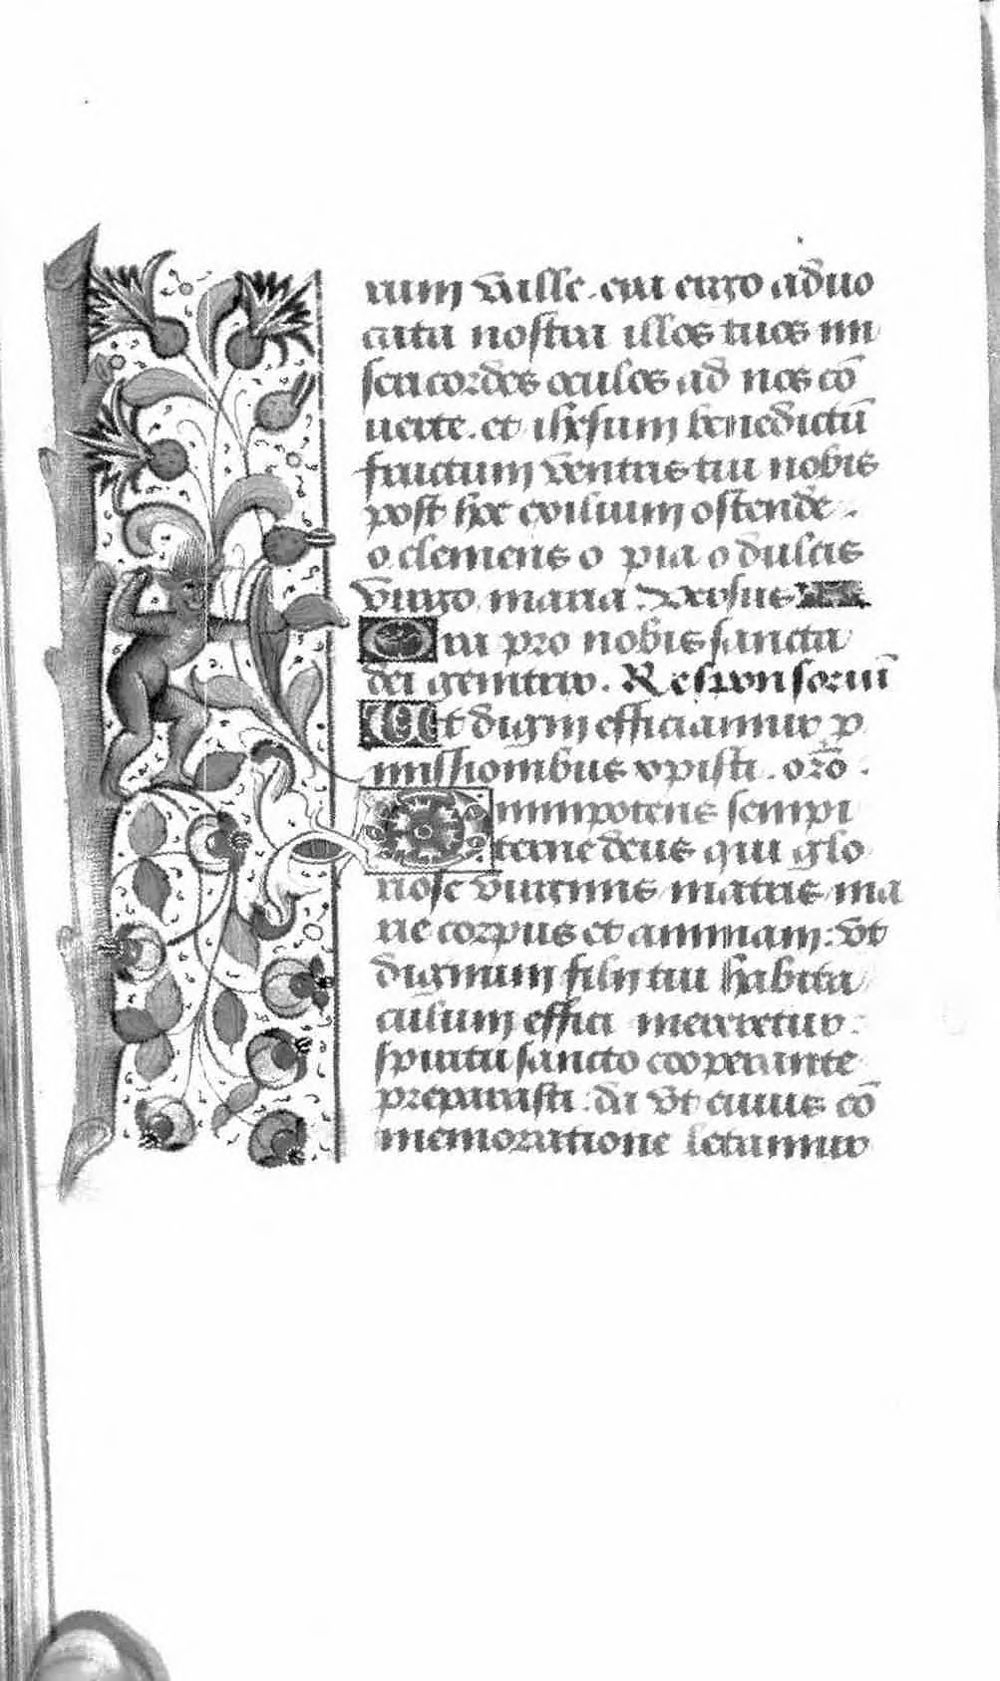 rum valle. eia ergo aduo
cata nostra illos tuos mi
sericordes oculos ad nos cō
uerte. et ihesum benedictū
fructum ventris tui nobis
post hoc exilium ostende.
o clemens o pia o dulcis
virgo maria. Versus
Ora pro nobis sancta
dei genitrix. Responsoriū
Ut digni efficiamur p
missionibus xpisti. orō.
Omnipotens sempi
terne deus qui glo
riose virginis matris ma
rie corpus et animam: vt
dignum filij tui habita
culum effici mereretur:
spiritu sancto cooperante
preparasti: da vt cuius cō
memoratione letamur